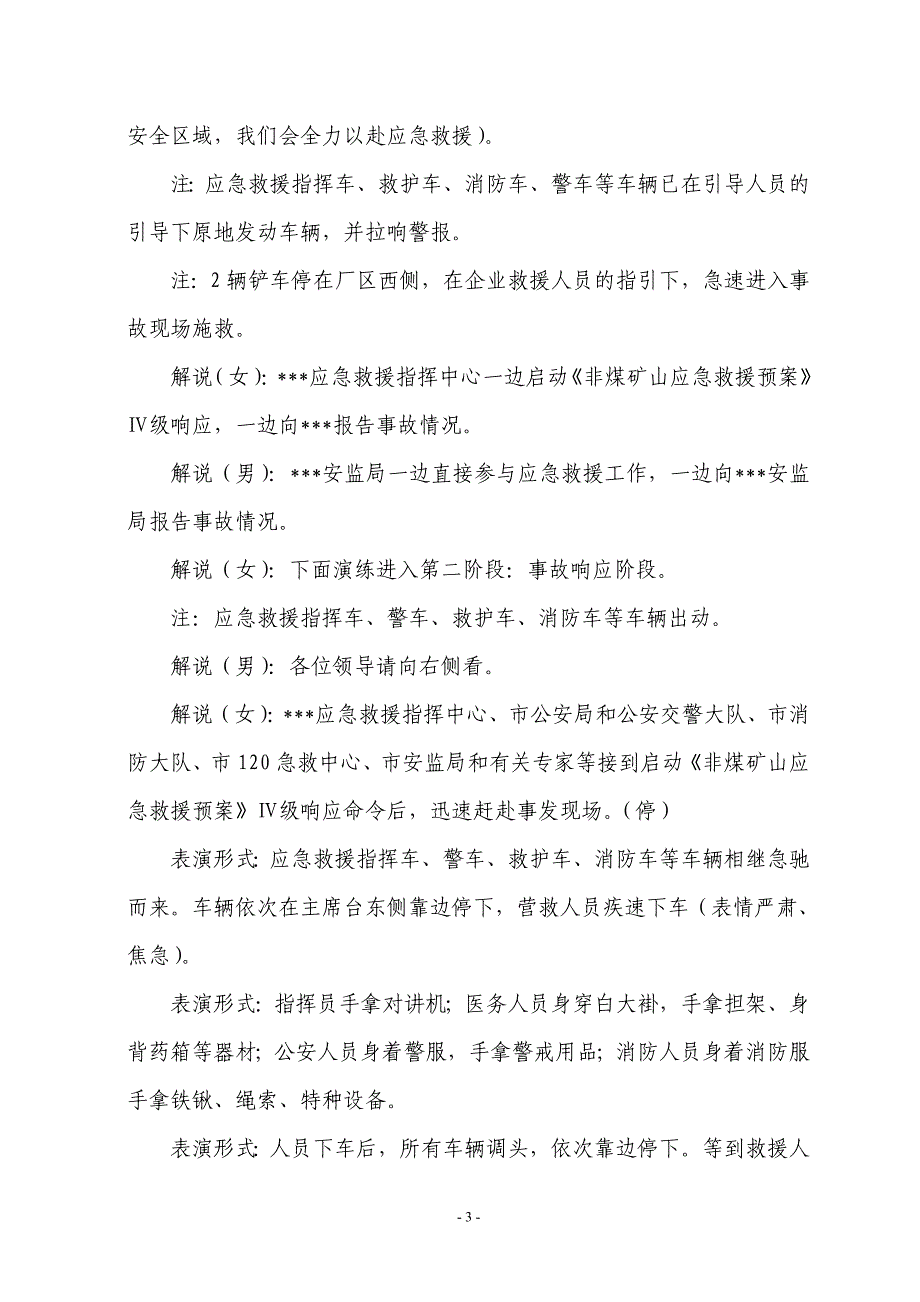 安全区域，我们会全力以赴应急救援）。
注：应急救援指挥车、救护车、消防车、警车等车辆已在引导人员的
引导下原地发动车辆，并拉响警报。
注：2 辆铲车停在厂区西侧，在企业救援人员的指引下，急速进入事
故现场施救。
解说（女）：***应急救援指挥中心一边启动《非煤矿山应急救援预案》
Ⅳ级响应，一边向***报告事故情况。
解说（男）：***安监局一边直接参与应急救援工作，一边向***安监
局报告事故情况。
解说（女）：下面演练进入第二阶段：事故响应阶段。
注：应急救援指挥车、警车、救护车、消防车等车辆出动。
解说（男）：各位领导请向右侧看。
解说（女）：***应急救援指挥中心、市公安局和公安交警大队、市消
防大队、市 120 急救中心、市安监局和有关专家等接到启动《非煤矿山应
急救援预案》Ⅳ级响应命令后，迅速赶赴事发现场。（停）
表演形式：应急救援指挥车、警车、救护车、消防车等车辆相继急驰
而来。车辆依次在主席台东侧靠边停下，营救人员疾速下车（表情严肃、
焦急）。
表演形式：指挥员手拿对讲机；医务人员身穿白大褂，手拿担架、身
背药箱等器材；公安人员身着警服，手拿警戒用品；消防人员身着消防服
手拿铁锹、绳索、特种设备。
表演形式：人员下车后，所有车辆调头，依次靠边停下。等到救援人
- 3 -